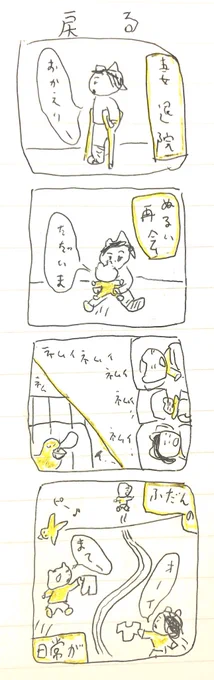 戻る
妻退院
おかえりー
ぬるい
再会
ただいま
ネムイ
ネムイ
ネムイ
ネムイ
ふだんの
ピー♪
オーイ
まて
日常が